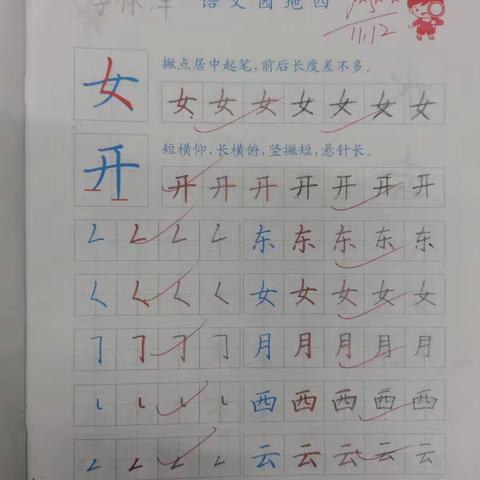 语文园地四
11.12
撇点居中起笔,前后长度差不多。
女 女女女女女女女
短横仰,长横俯,竖撇短,悬针长。
开 开开开开开开开
东东东东东
女女女女女
月月月月月
西西西西西
云云云云云